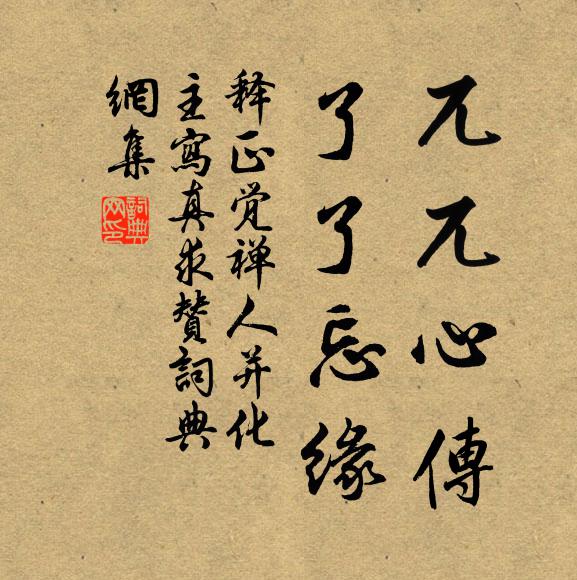 兀兀心傳
了了忘緣
释正覚禅人并化
主寫真求贊詞典
網集
詞典
网印